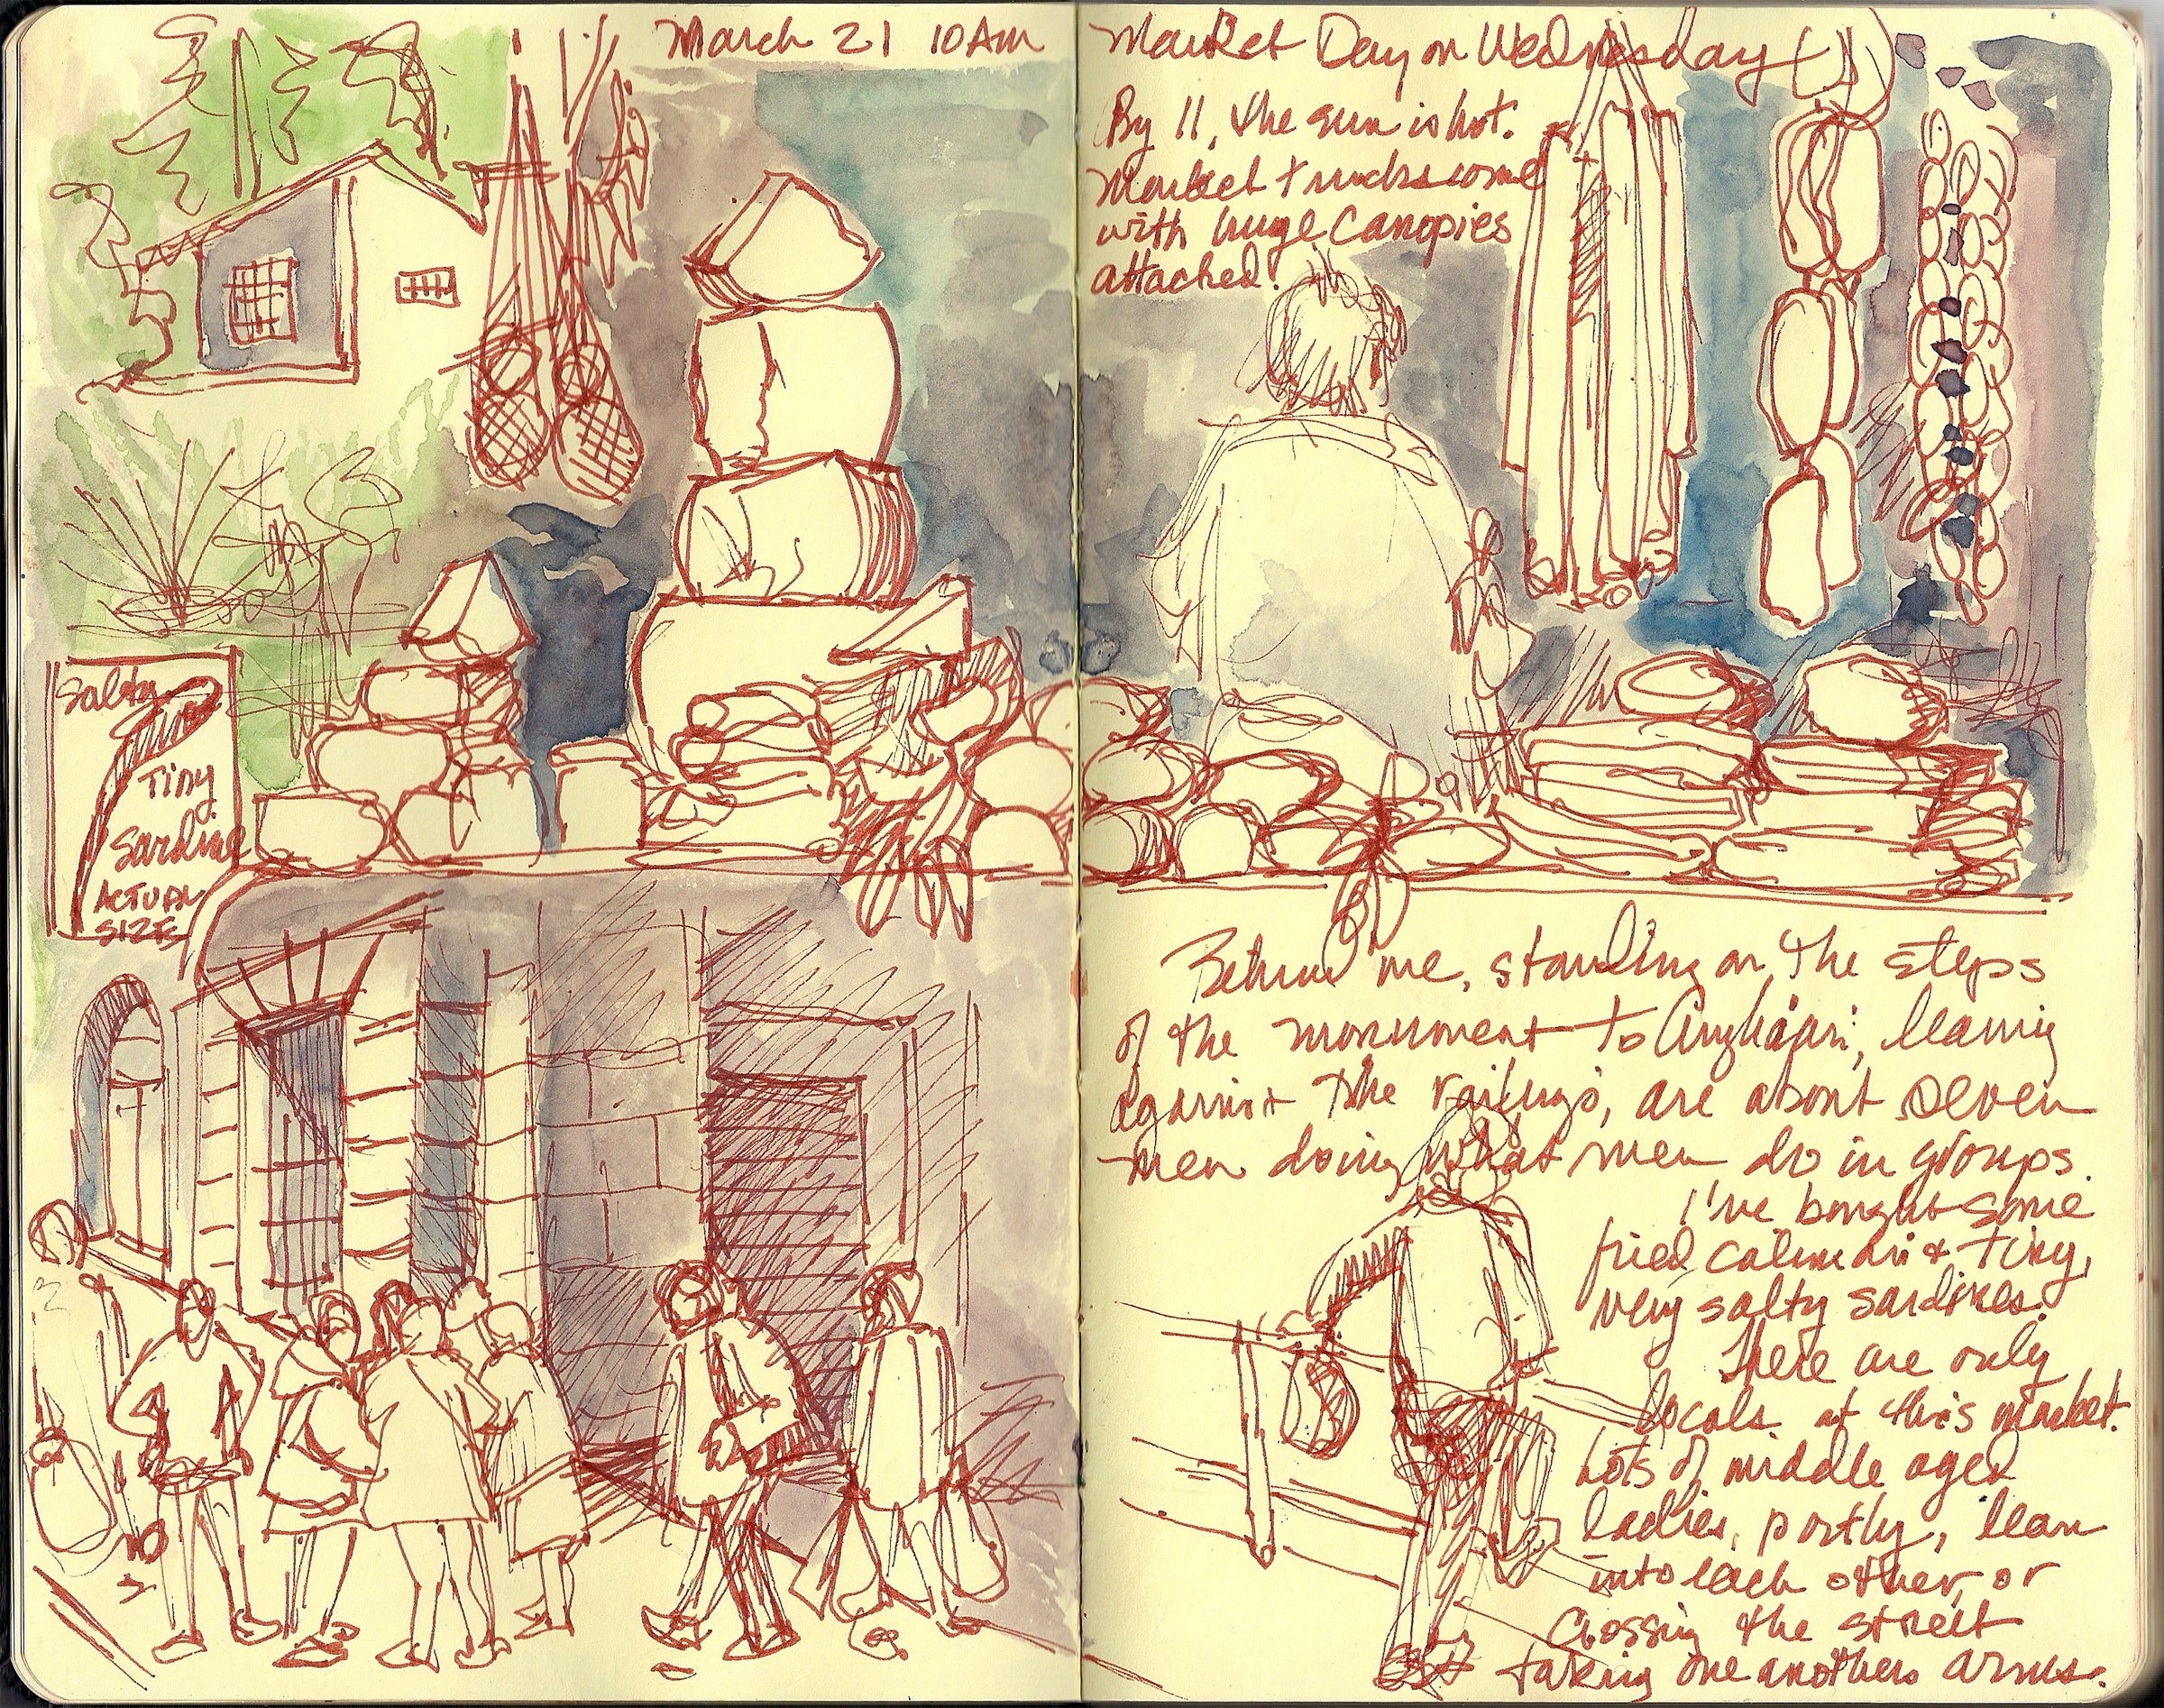 March 21 10 AM
Salty
Tiny
Sardine
ACTUAL
SIZE
Market Day on Wednesday
By 11, the sun is hot.
Market trucks come
with huge canopies
attached.
Behind me, standing on the steps
of the monument to Anghiari, leaning
against the railings, are about seven
men doing what men do in groups.
I've bought some
fried calimari & tiny,
very salty sardines.
There are only
locals at this market.
Lots of middle aged
ladies, portly, lean
into each other, or
crossing the street
taking one anothers arms.